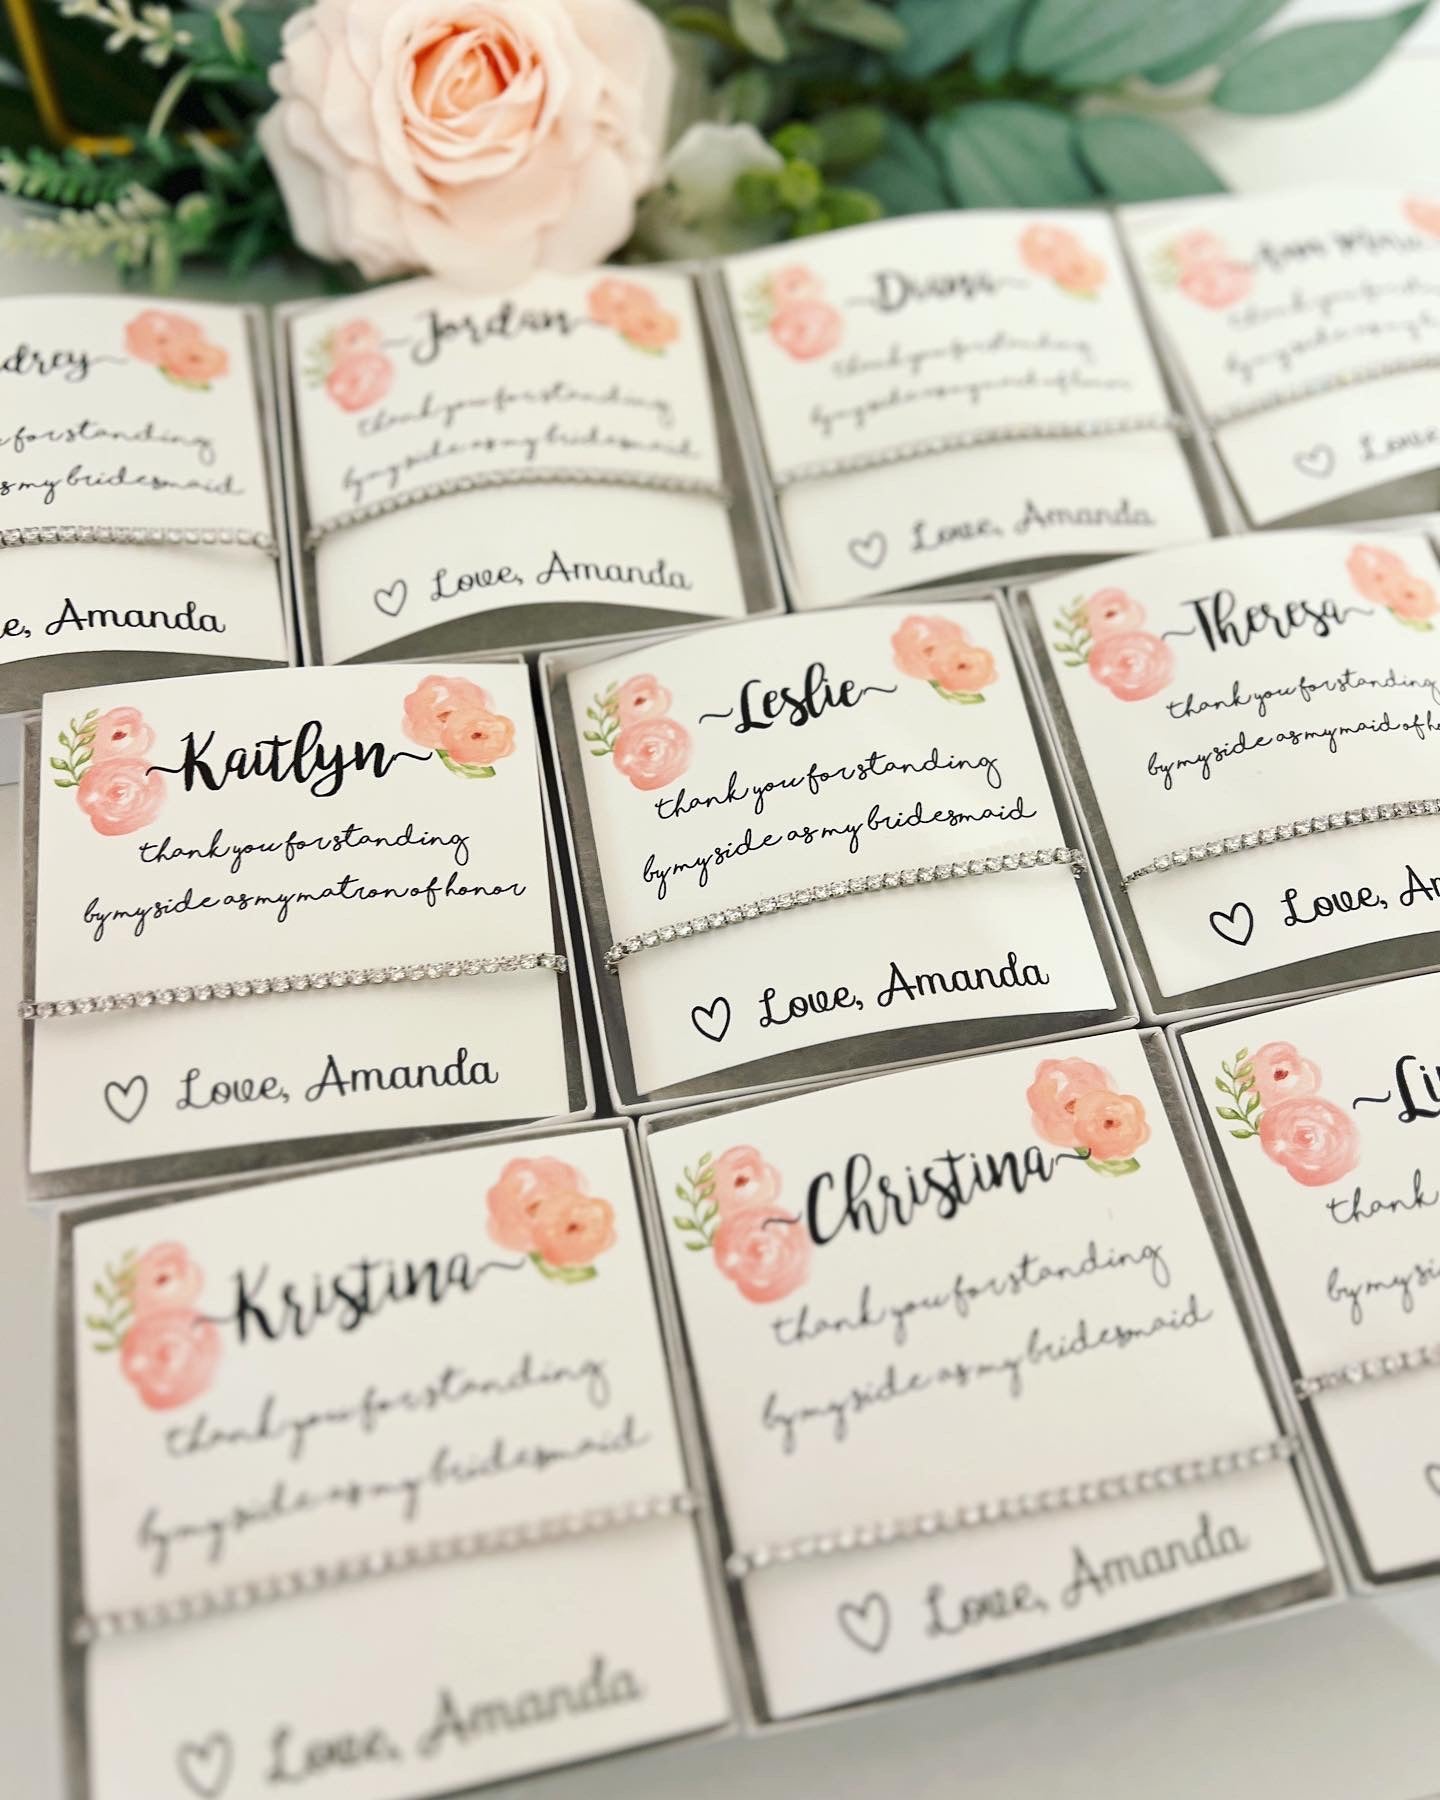 drey
for standing
as my bridesmaid
e, Amanda
~Jordan~
thank you for standing
by my side as my bridesmaid
♡ Love, Amanda
~Diana~
thank you for standing
by my side as my maid of honor
♡ Love, Amanda
thank you for standing
by my side as my
♡ Love,
~Kaitlyn~
thank you for standing
by my side as my matron of honor
♡ Love, Amanda
~Leslie~
thank you for standing
by my side as my bridesmaid
♡ Love, Amanda
~Theresa~
thank you for standing
by my side as my maid of ho
♡ Love, Am
~Kristina~
thank you for standing
by my side as my bridesmaid
♡ Love, Amanda
~Christina~
thank you for standing
by my side as my bridesmaid
♡ Love, Amanda
~Li
thank
by my si
♡